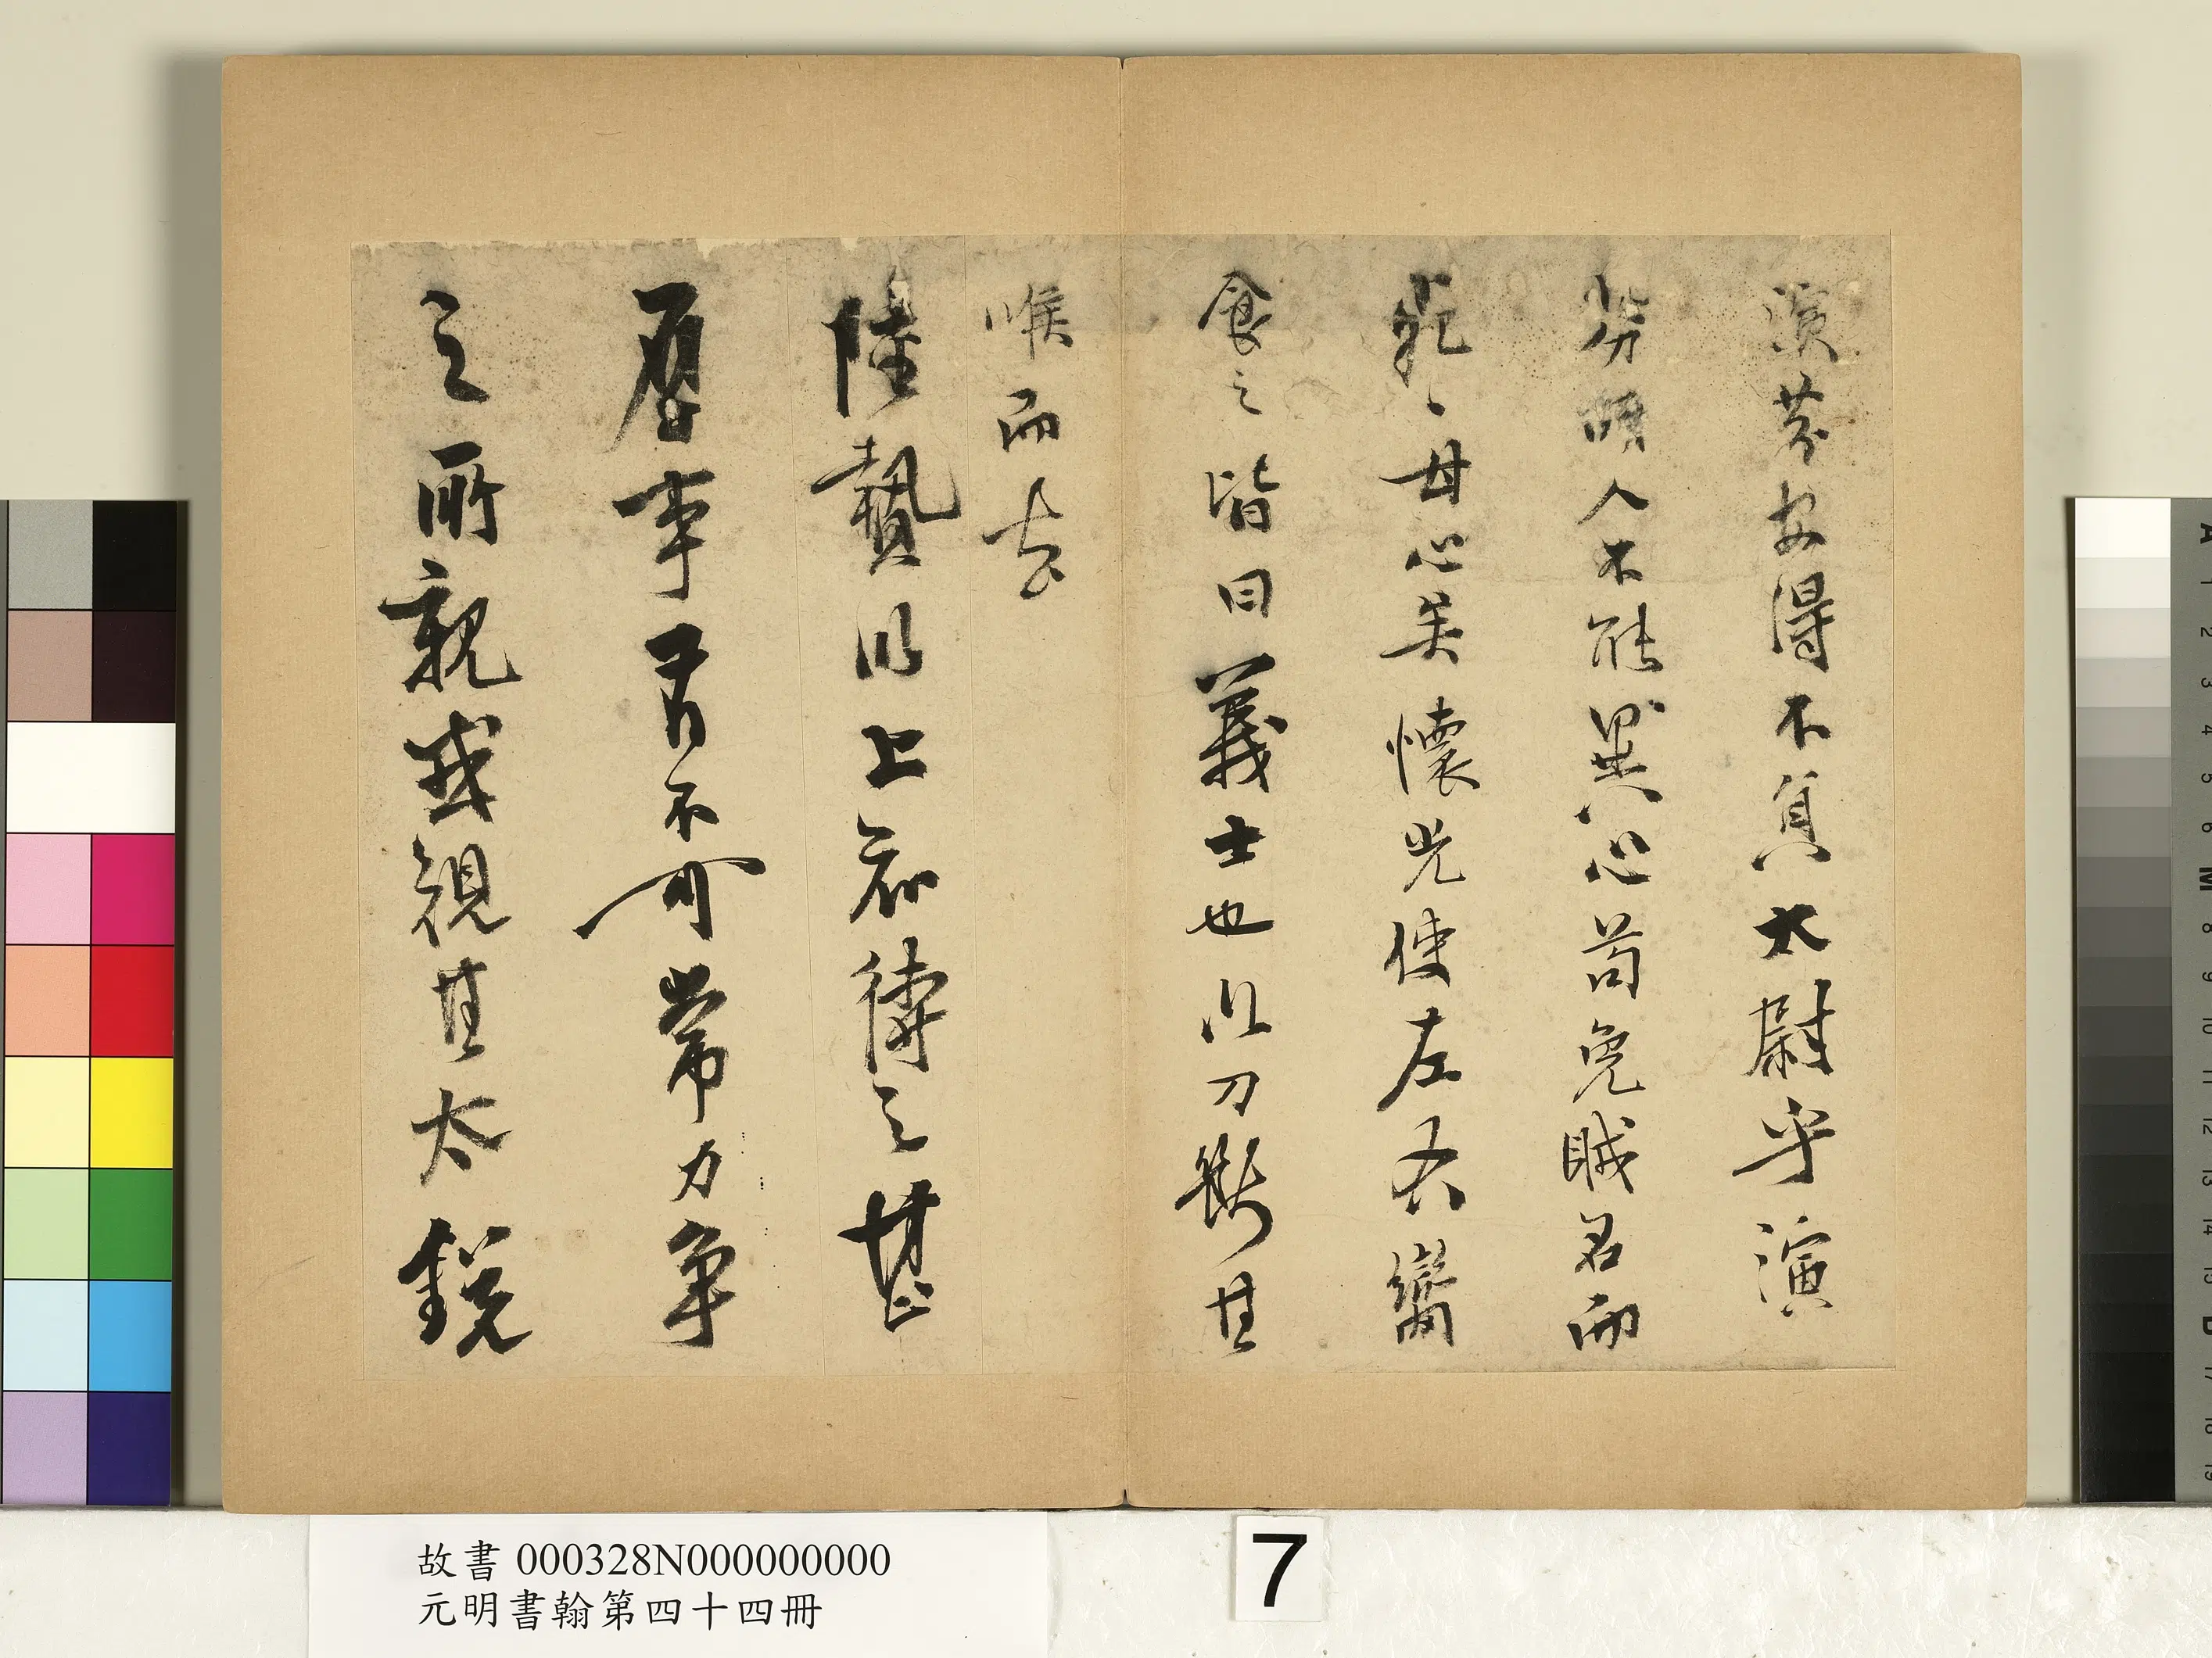 演芬安得不負太尉乎演
芬胡人不能異心苟免賊名而
死、甘心矣懷光使左右臠
食之皆曰義士也以刀斷其
喉而去
陸贄以上知待之甚
厚事有不可常力争
之所親或規其太銳
故書 000328N000000000
元明書翰第四十四冊
7